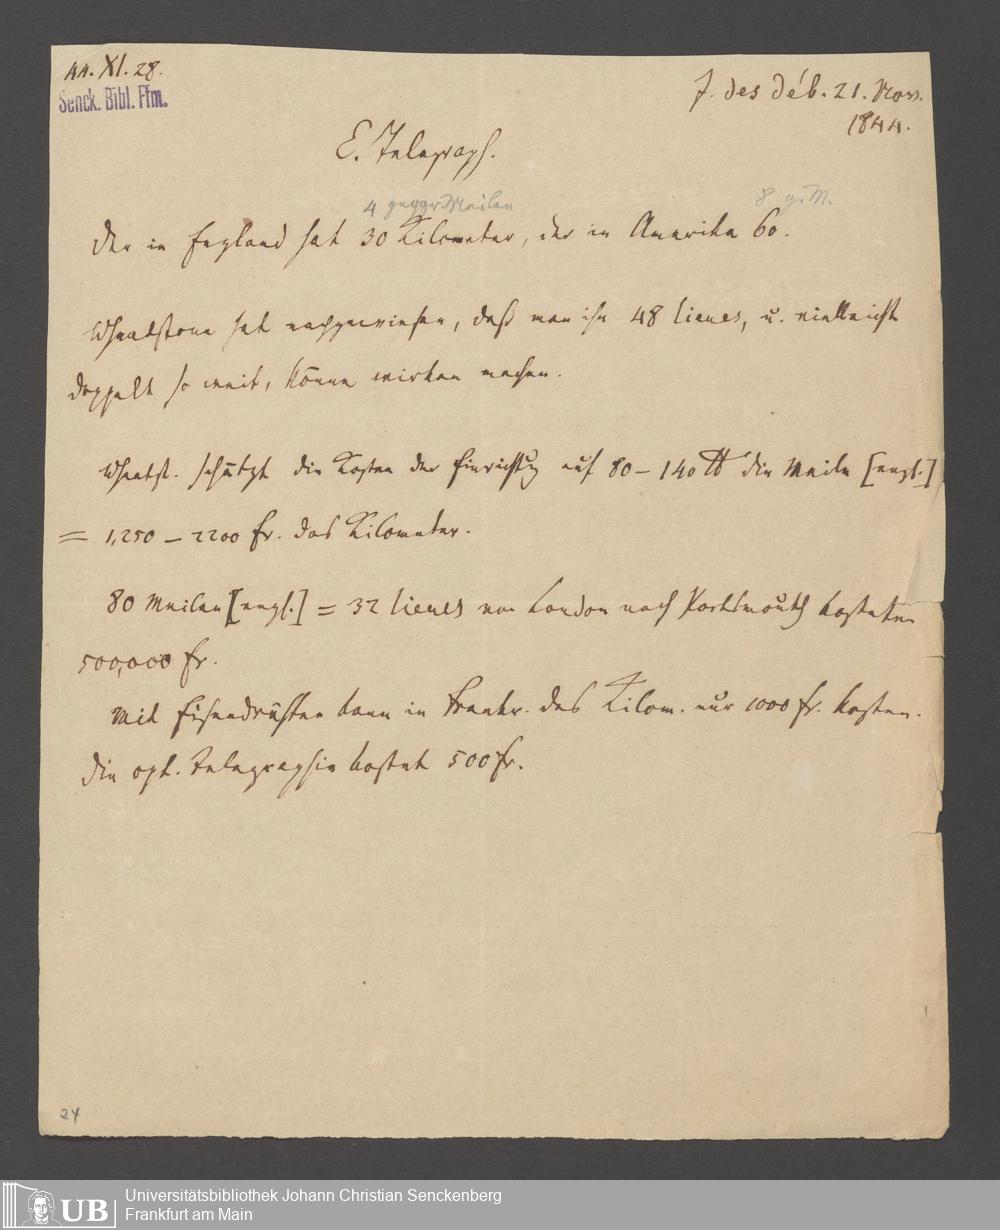 44. XI. 28.
Senck. Bibl. Ffm.
J. des Déb. 21. Nov.
1844.
E. Telegraph.
4 geogr Meilen 8 g. M.
Der in England hat 30 Kilometer, der in Amerika 60.
Wheatstone hat nachgewiesen, daß man ihn 48 lieues, u. vielleicht
doppelt so weit, könne wirken machen.
Wheatst. schätzt die Kosten der Einrichtg auf 80 – 140 ℔ die Meile [engl.]
= 1,250 – 2200 fr. das Kilometer.
80 Meilen [engl.] = 32 lieues von London nach Portsmouth kosteten
500,000 fr.
Mit Eisendrähten kann in Frankr. das Kilom. nur 1000 fr. kosten.
Die opt. Telegraphie kostet 500 fr.
24
UB
Universitätsbibliothek Johann Christian Senckenberg
Frankfurt am Main